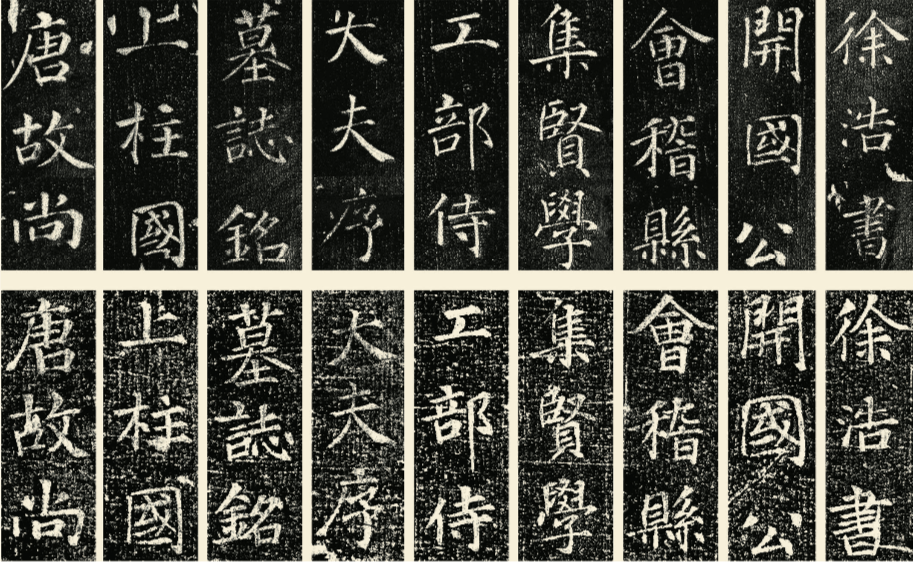 唐故尚
上柱國
墓誌銘
大夫序
工部侍
集賢學
會稽縣
開國公
徐浩書
唐故尚
上柱國
墓誌銘
大夫序
工部侍
集賢學
會稽縣
開國公
徐浩書